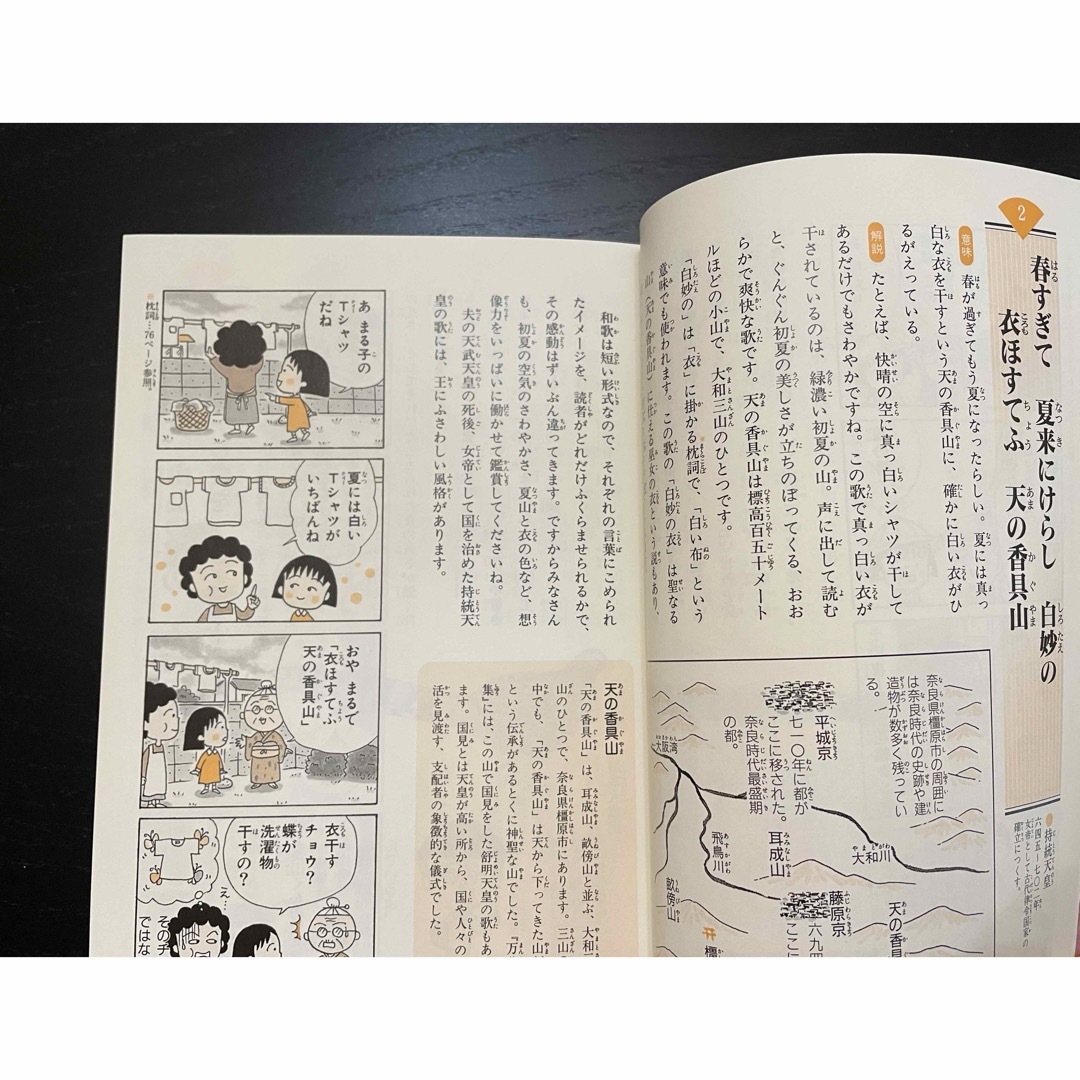 2
春すぎて 夏来にけらし 白妙の
衣ほすてふ 天の香具山
●持統天皇
六四五〜七〇二年
女帝として古代律令国家の
確立につくす。
意味 春が過ぎてもう夏になったらしい。夏には真っ
白な衣を干すという天の香具山に、確かに白い衣がひ
るがえっている。
解説 たとえば、快晴の空に真っ白いシャツが干して
あるだけでもさわやかですね。この歌で真っ白い衣が
干されているのは、緑濃い初夏の山。声に出して読む
と、ぐんぐん初夏の美しさが立ちのぼってくる、おお
らかで爽快な歌です。天の香具山は標高百五十メート
ルほどの小山で、大和三山のひとつです。
「白妙の」は「衣」に掛かる枕詞で、「白い布」という
意味でも使われます。この歌の「白妙の衣」は聖なる
山（天の香具山）に仕える巫女の衣という説もあり、
奈良県橿原市の周囲に
は奈良時代の史跡や建
造物が数多く残ってい
る。
平城京
七一〇年に都が
ここに移された。
奈良時代最盛期
の都。
大阪湾
飛鳥川
大和川
耳成山
畝傍山
藤原京
六九四
ここに
天の香具
橿
和歌は短い形式なので、それぞれの言葉にこめられ
たイメージを、読者がどれだけふくらませられるかで、
その感動はずいぶん違ってきます。ですからみなさん
も、初夏の空気のさわやかさ、夏山と衣の色など、想
像力をいっぱいに働かせて鑑賞してくださいね。
夫の天武天皇の死後、女帝として国を治めた持統天
皇の歌には、王にふさわしい風格があります。
※枕詞…76ページ参照。
天の香具山
「天の香具山」は、耳成山、畝傍山と並ぶ、大和三
山のひとつで、奈良県橿原市にあります。三山の
中でも、「天の香具山」は天から下ってきた山
という伝承があるとくに神聖な山でした。『万
集』には、この山で国見をした舒明天皇の歌もあ
ます。国見とは天皇が高い所から、国や人々の
活を見渡す、支配者の象徴的な儀式でした。
あ まる子の
Tシャツ
だね
夏には白い
Tシャツが
いちばんね
おや まるで
「衣ほすてふ
天の香具山」
衣干す
チョウ？
蝶が
洗濯物
干すの？
そのチ
ではな